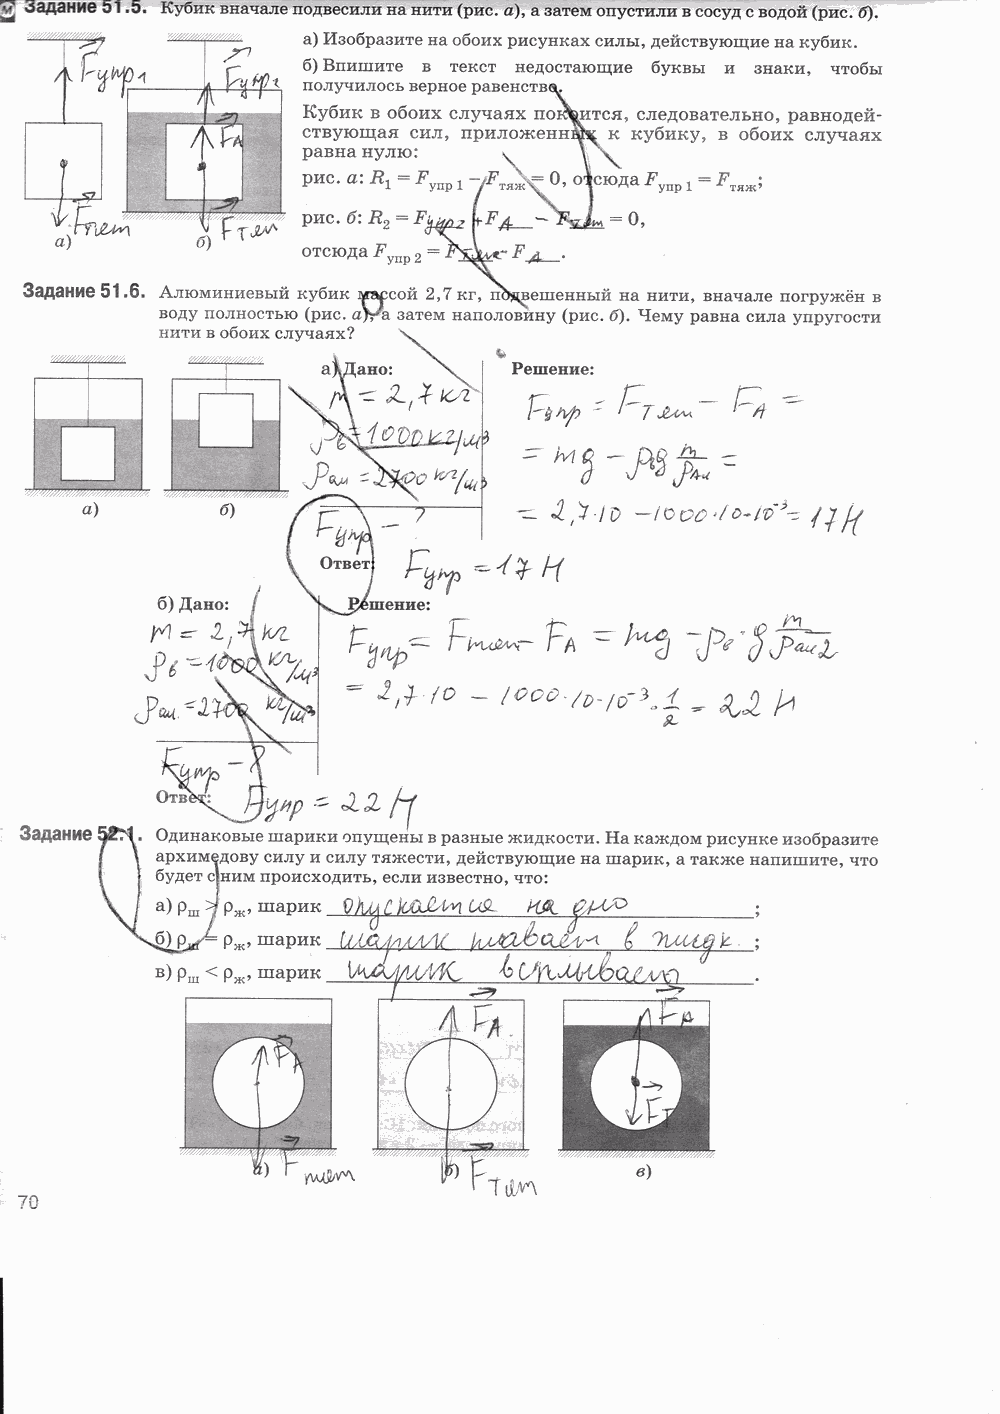 Задание 51.5. Кубик вначале подвесили на нити (рис. а), а затем опустили в сосуд с водой (рис. б).
а) Изобразите на обоих рисунках силы, действующие на кубик.
б) Впишите в текст недостающие буквы и знаки, чтобы
получилось верное равенство.
Кубик в обоих случаях покоится, следовательно, равнодей-
ствующая сил, приложенных к кубику, в обоих случаях
равна нулю:
рис. а: R₁ = Fупр 1 − Fтяж = 0, отсюда Fупр 1 = Fтяж;
рис. б: R₂ = Fупр2 + FA − Fтяж = 0,
отсюда Fупр 2 = Fтяж − FA.
Fупр1
Fупр2
FA
Fтяж
Fтяж
а)
б)
Задание 51.6. Алюминиевый кубик массой 2,7 кг, подвешенный на нити, вначале погружён в
воду полностью (рис. а), а затем наполовину (рис. б). Чему равна сила упругости
нити в обоих случаях?
а)
б)
а) Дано:
m = 2,7 кг
ρв = 1000 кг/м³
ρал = 2700 кг/м³
Fупр − ?
Решение:
Fупр = Fтяж − FA =
= mg − ρвg m/ρал =
= 2,7·10 − 1000·10·10⁻³ = 17 Н
Ответ: Fупр = 17 Н
б) Дано:
m = 2,7 кг
ρв = 1000 кг/м³
ρал = 2700 кг/м³
Fупр − ?
Решение:
Fупр = Fтяж − FA = mg − ρв·g m/ρал2
= 2,7·10 − 1000·10·10⁻³·1/2 = 22 Н
Ответ: Fупр = 22 Н
Задание 52.1. Одинаковые шарики опущены в разные жидкости. На каждом рисунке изобразите
архимедову силу и силу тяжести, действующие на шарик, а также напишите, что
будет с ним происходить, если известно, что:
а) ρш > ρж, шарик опускается на дно;
б) ρш = ρж, шарик шарик плавает в жидк.;
в) ρш < ρж, шарик шарик всплывает.
FA
FA
FA
Fт
Fтяж
Fтяж
а)
б)
в)
70